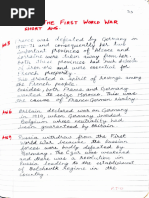 THE FIRST WORLD WAR
SHORT ANS
France was defeated by Germany in
1871 and consequently her two
important provinces of Alsace and
Lorraine were taken away from her.
Both these provinces had rich deposits
of iron ore and were essential for
France's prosperity.
This created a spirit of revenge among
the French people.
Besides, both France and Germany
wanted to seize Morocco. This was
the cause of Franco-German rivalry.
Britain declared war on Germany
in 1914, when Germany invaded
Belgium, whose neutrality had
been guaranteed by
Russia withdrew from the First
World War because the Russian
forces were badly defeated
by Germany. The
there was a Revolution in
Russia leading to the establishment
of Bolshevik regime in the